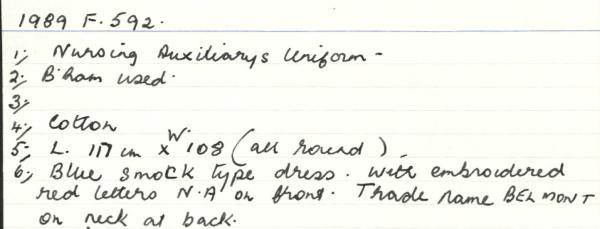 1989 F. 592.
1; Nursing Auxiliarys Uniform -
2; B'ham used.
3;
4; Cotton
5; L. 117 cm x W. 108 (all round).
6; Blue smock type dress. with embroidered
red letters N.A on front. Trade name BELMONT
on neck at back.